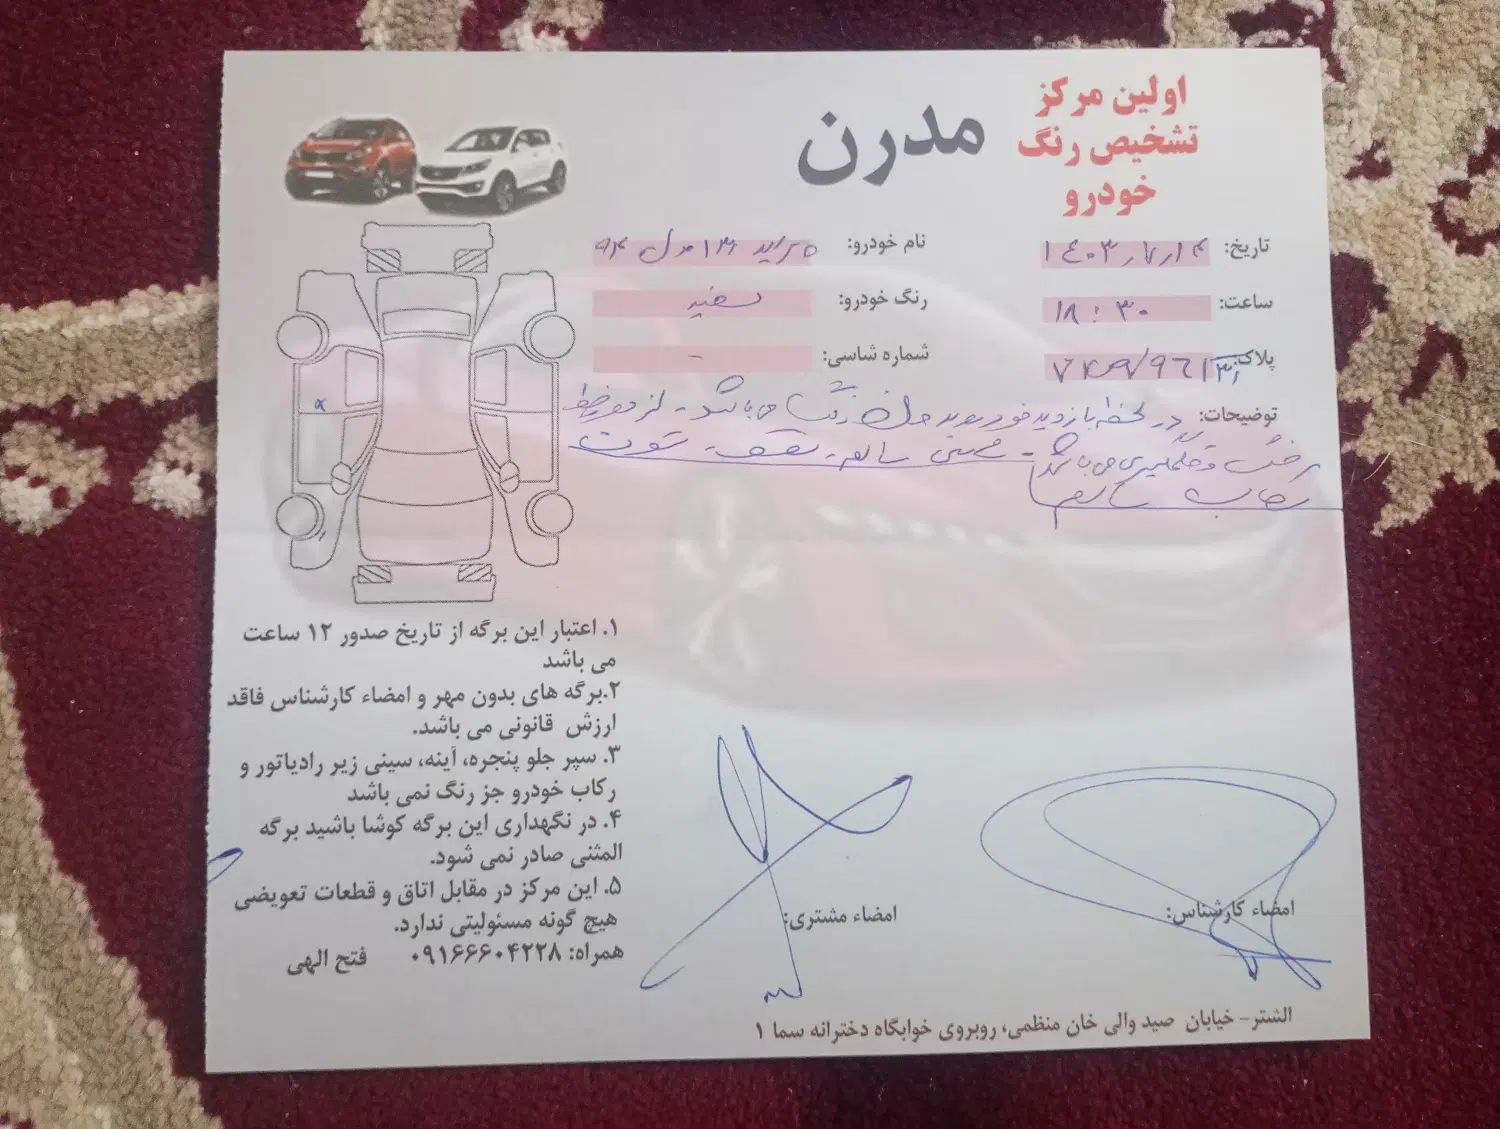 اولین مرکز
تشخیص رنگ
خودرو
مدرن
تاریخ:
نام خودرو: پراید ۱۳۱ مدل ۹۴
ساعت: ۱۸:۳۰
رنگ خودرو: سفید
پلاک:
شماره شاسی: -
توضیحات: در لحظه بازدید خودرو بدون رنگ می باشد -
و قلمگیری می باشد - شاسی سالم - سقف - ستون
رکاب سالم
۱. اعتبار این برگه از تاریخ صدور ۱۲ ساعت
می باشد
۲.برگه های بدون مهر و امضاء کارشناس فاقد
ارزش قانونی می باشد.
۳. سپر جلو پنجره، آینه، سینی زیر رادیاتور و
رکاب خودرو جز رنگ نمی باشد
۴. در نگهداری این برگه کوشا باشید برگه
المثنی صادر نمی شود.
۵. این مرکز در مقابل اتاق و قطعات تعویضی
هیچ گونه مسئولیتی ندارد.
همراه: ۰۹۱۶۶۶۰۴۲۲۸ فتح الهی
امضاء کارشناس:
امضاء مشتری:
الشتر- خیابان صید والی خان منظمی، روبروی خوابگاه دخترانه سما ۱